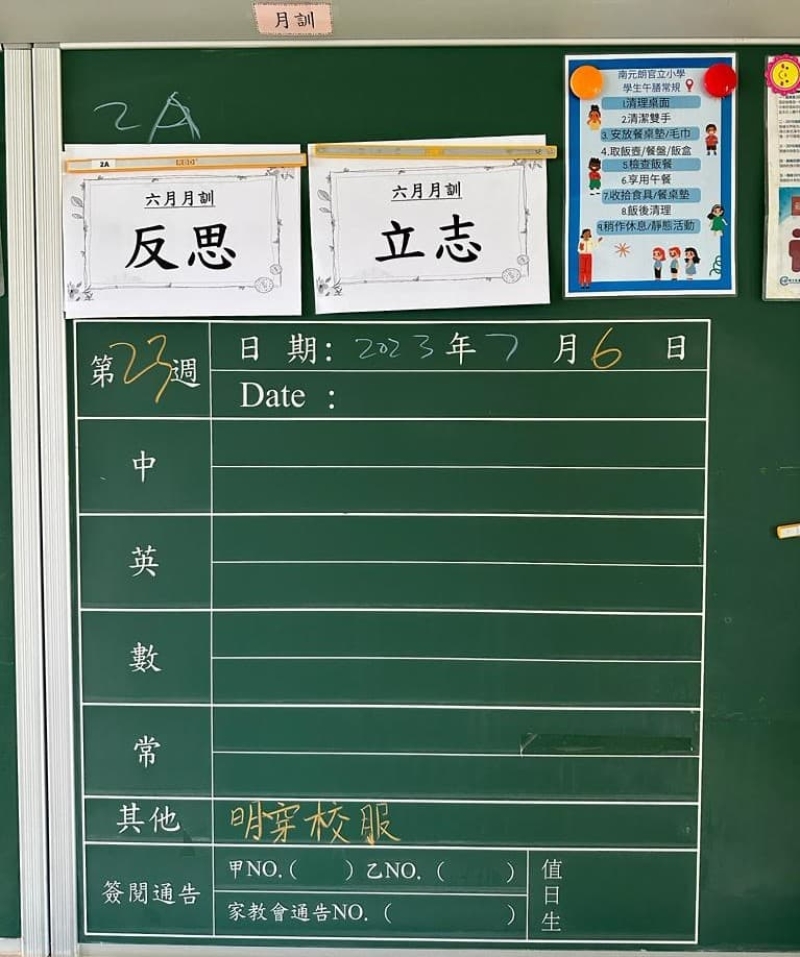 月訓
2A
2A
六月月訓
反思
六月月訓
立志
南元朗官立小學
學生午膳常規
1.清理桌面
2.清潔雙手
3.安放餐桌墊/毛巾
4.取飯壺/餐盤/飯盒
5.檢查飯餐
6.享用午餐
7.收拾食具/餐桌墊
8.飯後清理
9.稍作休息/靜態活動
第23週
日 期：2023年7月6日
Date ：
中
英
數
常
其他 明穿校服
簽閱通告
甲NO.( ) 乙NO.( )
家教會通告NO.( )
值日生